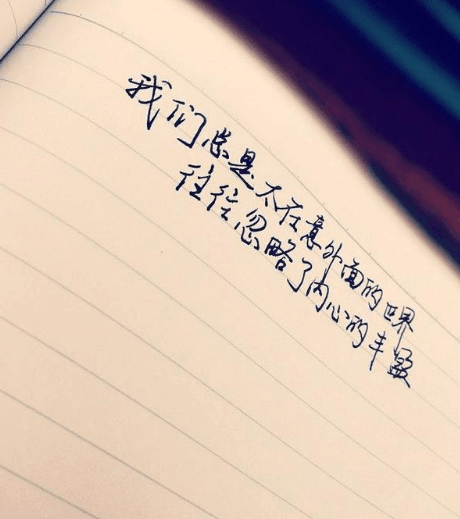 我们总是太在意外面的世界
往往忽略了内心的丰盈